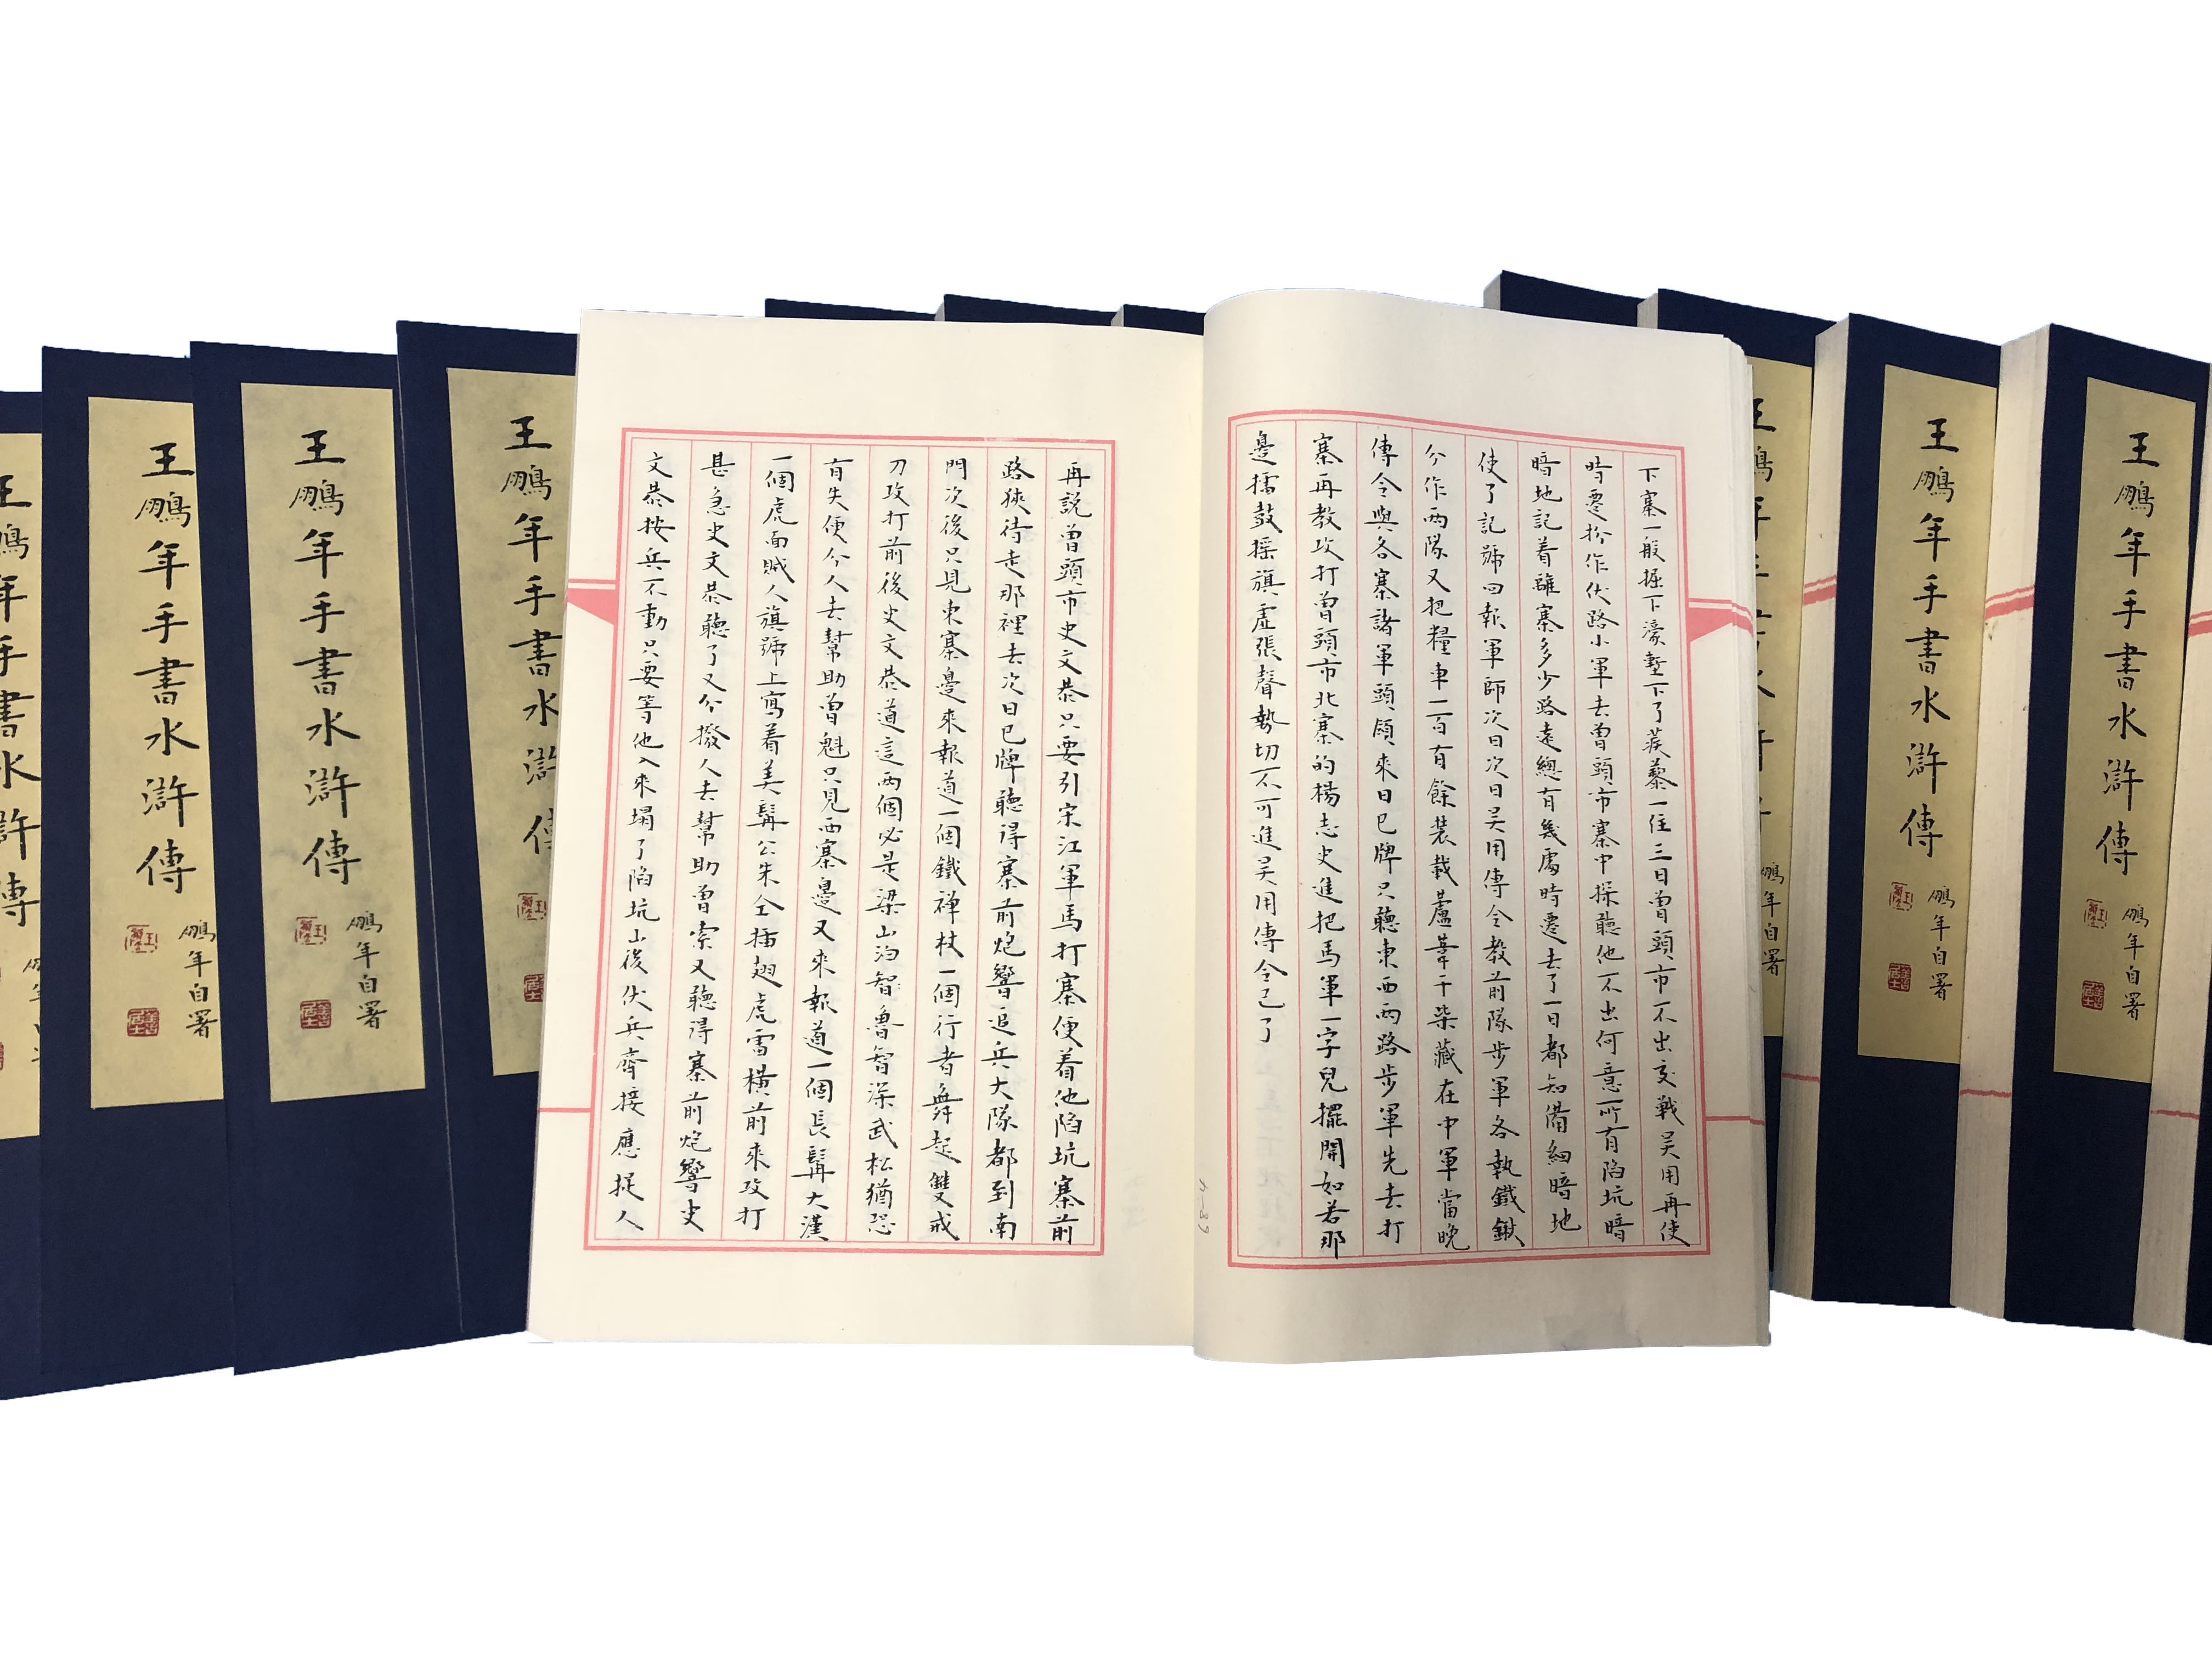 下寨一般掘下濠塹下了蒺藜一住三日曾頭市不出交戰吴用再使
時遷扮作伏路小軍去曾頭市寨中探聽他不出何意所有陷坑暗
暗地記着離寨多少路遠總有幾處時遷去了一日都知備細暗地
使了記號回報軍師次日次日吴用傳令教前隊步軍各執鐵鍬
分作兩隊又把糧車一百有餘裝載蘆葦干柴藏在中軍當晚
傳令與各寨諸軍頭領來日巳牌只聽東西兩路步軍先去打
寨再教攻打曾頭市北寨的楊志史進把馬軍一字兒擺開如若那
邊擂鼓摇旗虚張聲勢切不可進吴用傳令已了
再説曾頭市史文恭只要引宋江軍馬打寨便着他陷坑寨前
路狹待走那裡去次日巳牌聽得寨前炮響追兵大隊都到南
門次後只見東寨邊來報道一個鐵禅杖一個行者舞起雙戒
刀攻打前後史文恭道這兩個必是梁山泊智魯智深武松猶恐
有失便令人去幫助曾魁只見西寨邊又來報道一個長髯大漢
一個虎面賊人旗號上寫着美髯公朱仝插翅虎雷横前來攻打
甚急史文恭聽了又分撥人去幫助曾索又聽得寨前炮響史
文恭按兵不動只要等他入來塌了陷坑山後伏兵齊接應捉人
王鵬年手書水滸傳
鵬年自署
王鵬年手書水滸傳
鵬年自署
王鵬年手書水滸傳
王鵬年手書水滸傳
鵬年自署
王鵬年手書水滸傳
鵬年自署
鵬年自署